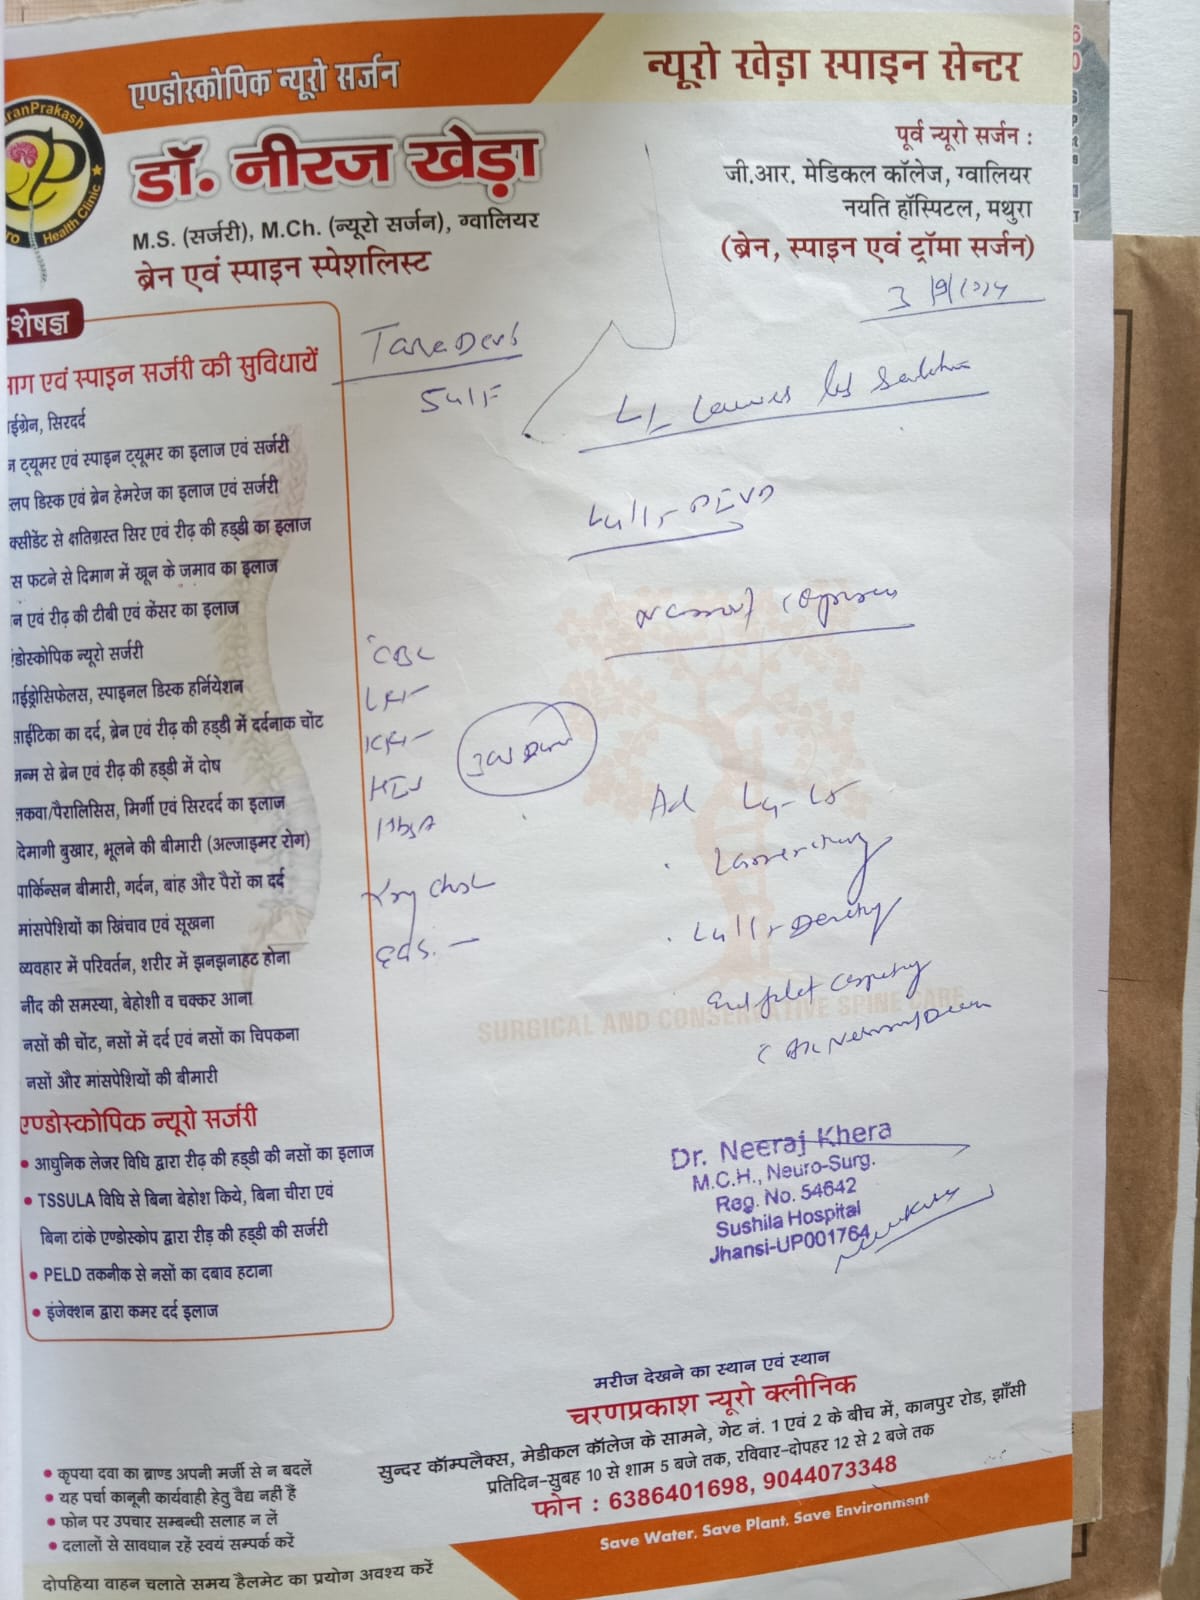 एण्डोस्कोपिक न्यूरो सर्जन
न्यूरो खेड़ा स्पाइन सेन्टर
ranPrakash
Health Clinic
डॉ. नीरज खेड़ा
M.S. (सर्जरी), M.Ch. (न्यूरो सर्जन), ग्वालियर
ब्रेन एवं स्पाइन स्पेशलिस्ट
पूर्व न्यूरो सर्जन :
जी.आर. मेडिकल कॉलेज, ग्वालियर
नयति हॉस्पिटल, मथुरा
(ब्रेन, स्पाइन एवं ट्रॉमा सर्जन)
शेषज्ञ
माग एवं स्पाइन सर्जरी की सुविधायें
ईग्रेन, सिरदर्द
न ट्यूमर एवं स्पाइन ट्यूमर का इलाज एवं सर्जरी
लप डिस्क एवं ब्रेन हेमरेज का इलाज एवं सर्जरी
क्सीडेंट से क्षतिग्रस्त सिर एवं रीढ़ की हड्डी का इलाज
स फटने से दिमाग में खून के जमाव का इलाज
न एवं रीढ़ की टीबी एवं केंसर का इलाज
ंडोस्कोपिक न्यूरो सर्जरी
ाईड्रोसिफेलस, स्पाइनल डिस्क हर्नियेशन
साईटिका का दर्द, ब्रेन एवं रीढ़ की हड्डी में दर्दनाक चोंट
जन्म से ब्रेन एवं रीढ़ की हड्डी में दोष
लकवा/पैरालिसिस, मिर्गी एवं सिरदर्द का इलाज
दिमागी बुखार, भूलने की बीमारी (अल्जाइमर रोग)
पार्किन्सन बीमारी, गर्दन, बांह और पैरों का दर्द
मांसपेशियों का खिंचाव एवं सूखना
व्यवहार में परिवर्तन, शरीर में झनझनाहट होना
नींद की समस्या, बेहोशी व चक्कर आना
नसों की चोंट, नसों में दर्द एवं नसों का चिपकना
नसों और मांसपेशियों की बीमारी
एण्डोस्कोपिक न्यूरो सर्जरी
• आधुनिक लेजर विधि द्वारा रीढ़ की हड्डी की नसों का इलाज
• TSSULA विधि से बिना बेहोश किये, बिना चीरा एवं
बिना टांके एण्डोस्कोप द्वारा रीड़ की हड्डी की सर्जरी
• PELD तकनीक से नसों का दबाव हटाना
• इंजेक्शन द्वारा कमर दर्द इलाज
CBC
LFT
KFT
HIV
SURGICAL AND CONSERVATIVE SPINE CARE
Dr. Neeraj Khera
M.C.H., Neuro-Surg.
Reg. No. 54642
Sushila Hospital
Jhansi-UP001764
मरीज देखने का स्थान एवं स्थान
चरणप्रकाश न्यूरो क्लीनिक
सुन्दर कॉम्पलैक्स, मेडीकल कॉलेज के सामने, गेट नं. 1 एवं 2 के बीच में, कानपुर रोड, झाँसी
प्रतिदिन-सुबह 10 से शाम 5 बजे तक, रविवार-दोपहर 12 से 2 बजे तक
फोन : 6386401698, 9044073348
• कृपया दवा का ब्राण्ड अपनी मर्जी से न बदलें
• यह पर्चा कानूनी कार्यवाही हेतु वैद्य नहीं हैं
• फोन पर उपचार सम्बन्धी सलाह न लें
• दलालों से सावधान रहें स्वयं सम्पर्क करें
Save Water, Save Plant, Save Environment
दोपहिया वाहन चलाते समय हैलमेट का प्रयोग अवश्य करें